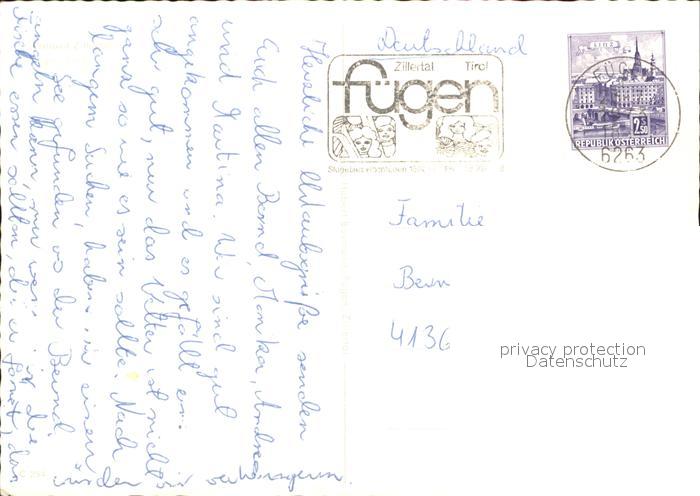 Deutschland
Zillertal Tirol
fügen
LINZ
2.50
REPUBLIK ÖSTERREICH
6263
Familie
4136
privacy protection
Datenschutz
Herzliche Urlaubsgrüße senden
Euch allen Bernd, Monika, Andrea
und Martina. Wir sind gut
angekommen und es gefällt
sehr gut, nur das Wetter ist nicht
ganz so wie es sein sollte. Nach
langem Suchen haben wir einen
See gefunden, wo der Bernd
angeln kann, nur was
Fische essen sollten
würden wir verhungern.